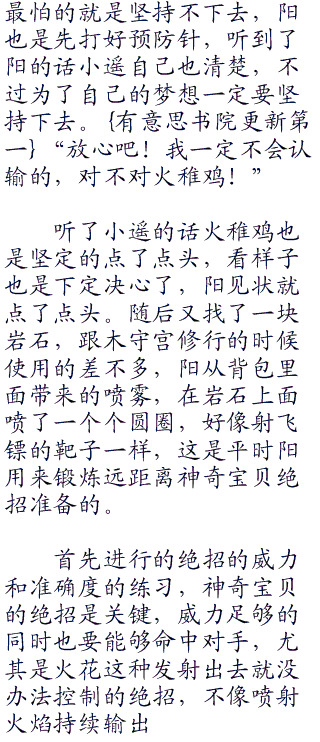 最怕的就是坚持不下去，阳
也是先打好预防针，听到了
阳的话小遥自己也清楚，不
过为了自己的梦想一定要坚
持下去。{有意思书院更新第
一}“放心吧！我一定不会认
输的，对不对火稚鸡！”
听了小遥的话火稚鸡也
是坚定的点了点头，看样子
也是下定决心了，阳见状就
点了点头。随后又找了一块
岩石，跟木守宫修行的时候
使用的差不多，阳从背包里
面带来的喷雾，在岩石上面
喷了一个个圆圈，好像射飞
镖的靶子一样，这是平时阳
用来锻炼远距离神奇宝贝绝
招准备的。
首先进行的绝招的威力
和准确度的练习，神奇宝贝
的绝招是关键，威力足够的
同时也要能够命中对手，尤
其是火花这种发射出去就没
办法控制的绝招，不像喷射
火焰持续输出